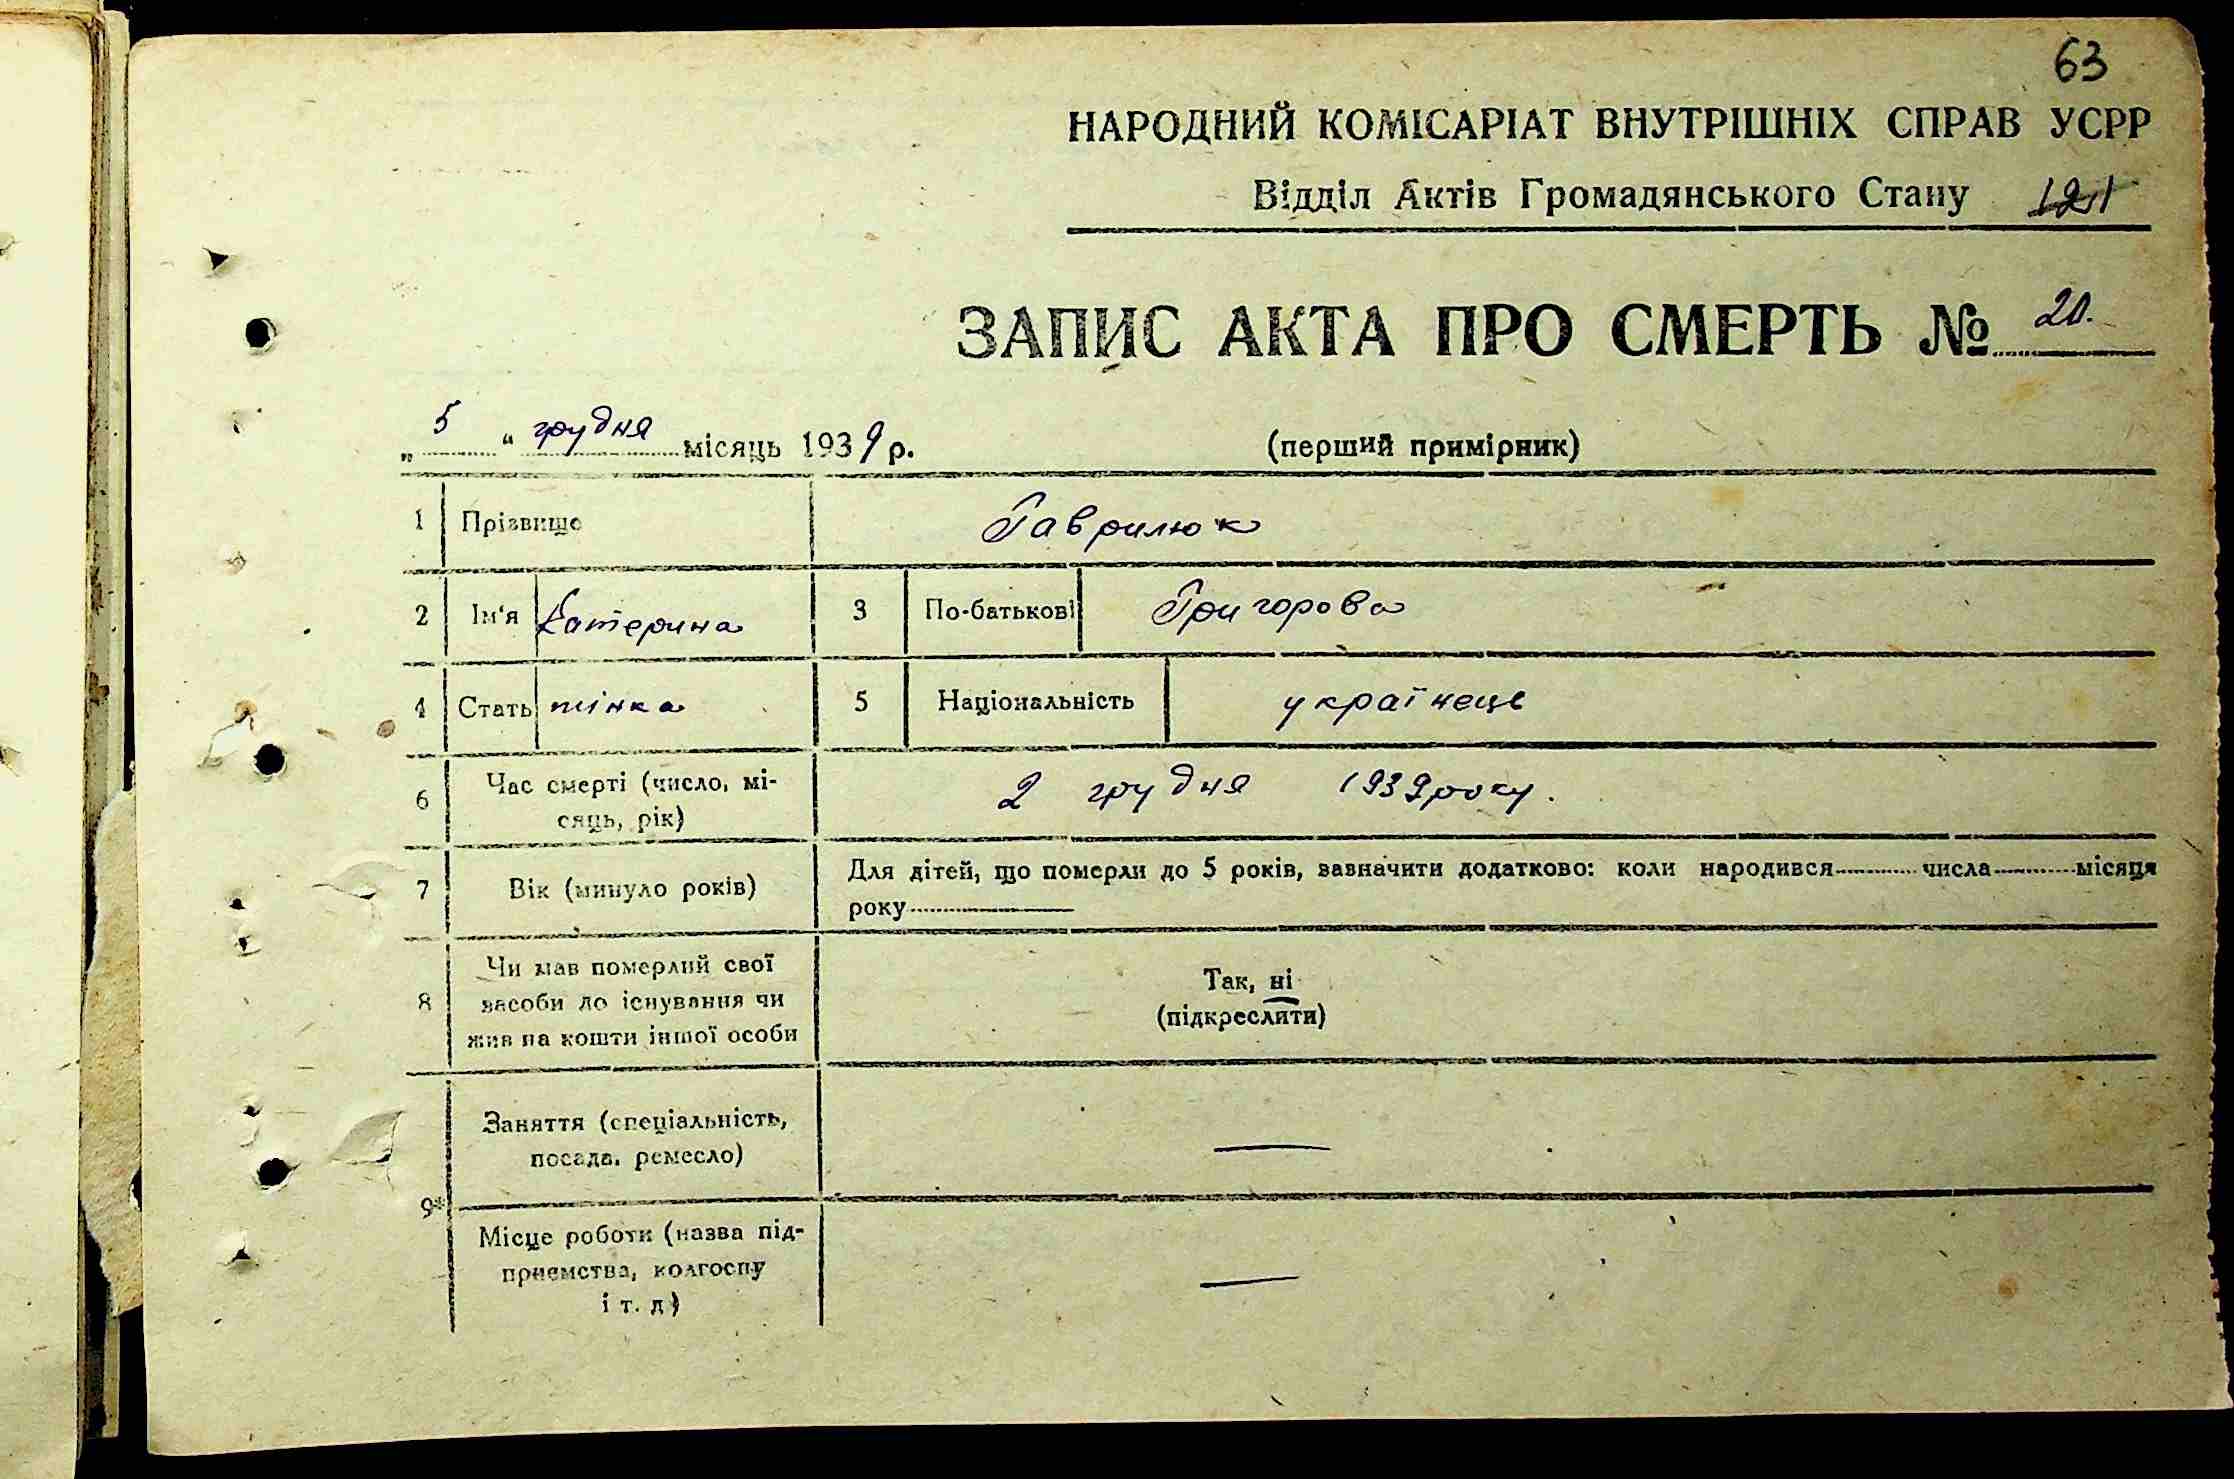 63
НАРОДНИЙ КОМІСАРІАТ ВНУТРІШНІХ СПРАВ УСРР
Відділ Актів Громадянського Стану 121
ЗАПИС АКТА ПРО СМЕРТЬ № 20.
„5“ грудня місяць 1939 р. (перший примірник)
1 Прізвище Гаврилюк
2 Ім'я Катерина 3 По-батькові Григорова
4 Стать жінка 5 Національність українець
6 Час смерті (число, мі-
сяць, рік) 2 грудня 1939 року.
7 Вік (минуло років) Для дітей, що померли до 5 років, зазначити додатково: коли народився числа місяця
року
8 Чи мав померлий свої
засоби до існування чи
жив на кошти іншої особи
Так, ні
(підкреслити)
9* Заняття (спеціальність,
посада, ремесло) —
Місце роботи (назва під-
приємства, колгоспу
і т. д) —